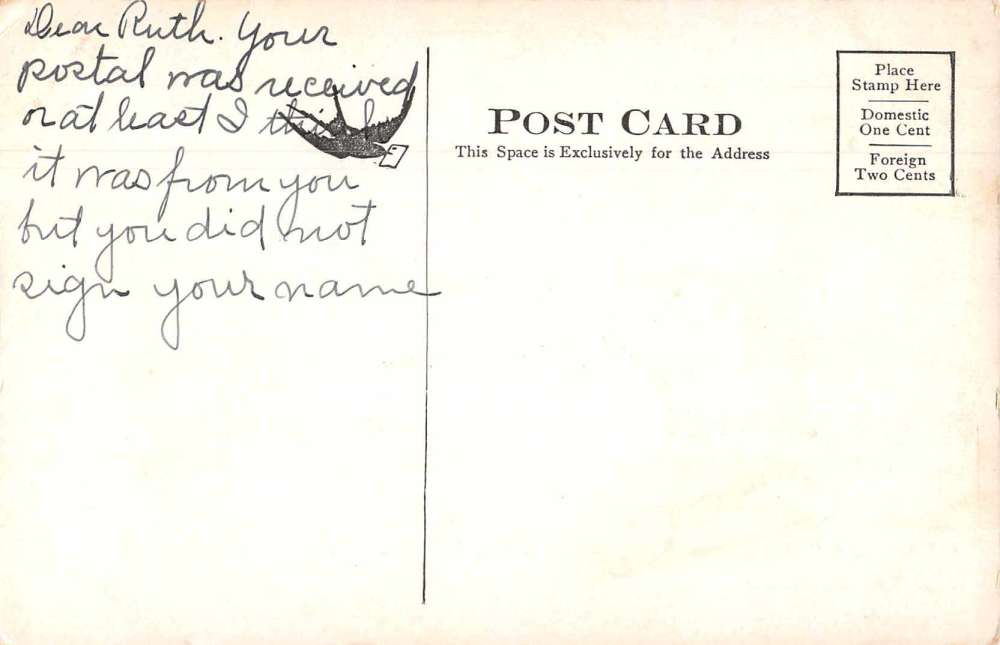 Dear Ruth. Your
postal was received
or at least I think
it was from you
but you did not
sign your name
POST CARD
This Space is Exclusively for the Address
Place
Stamp Here
Domestic
One Cent
Foreign
Two Cents